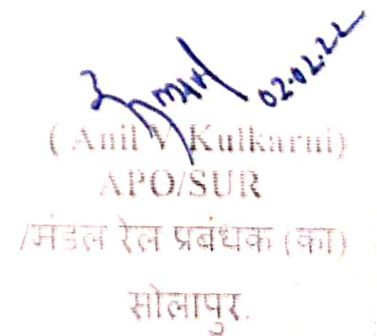 02.02.22
( Anil V Kulkarni)
APO/SUR
/मंडल रेल प्रबंधक (का)
सोलापुर.